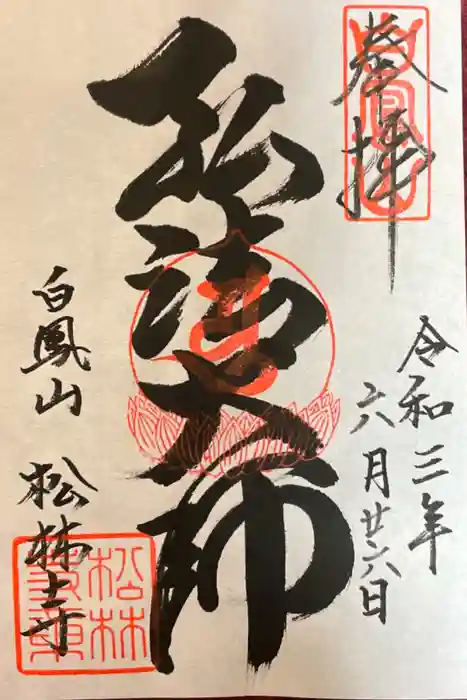 奉拝
令和三年
六月廿六日
弘法大師
白鳳山
松林寺
松林